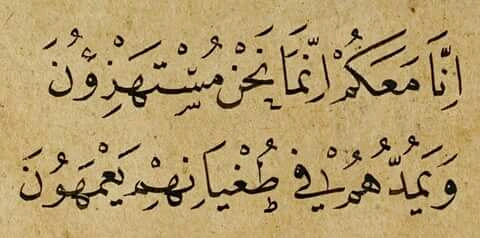 اِنَّا مَعَكُمْ اِنَّمَا نَحْنُ مُسْتَهْزِؤُنَ
وَيَمُدُّهُمْ في طُغْيَانِهِمْ يَعْمَهُونَ